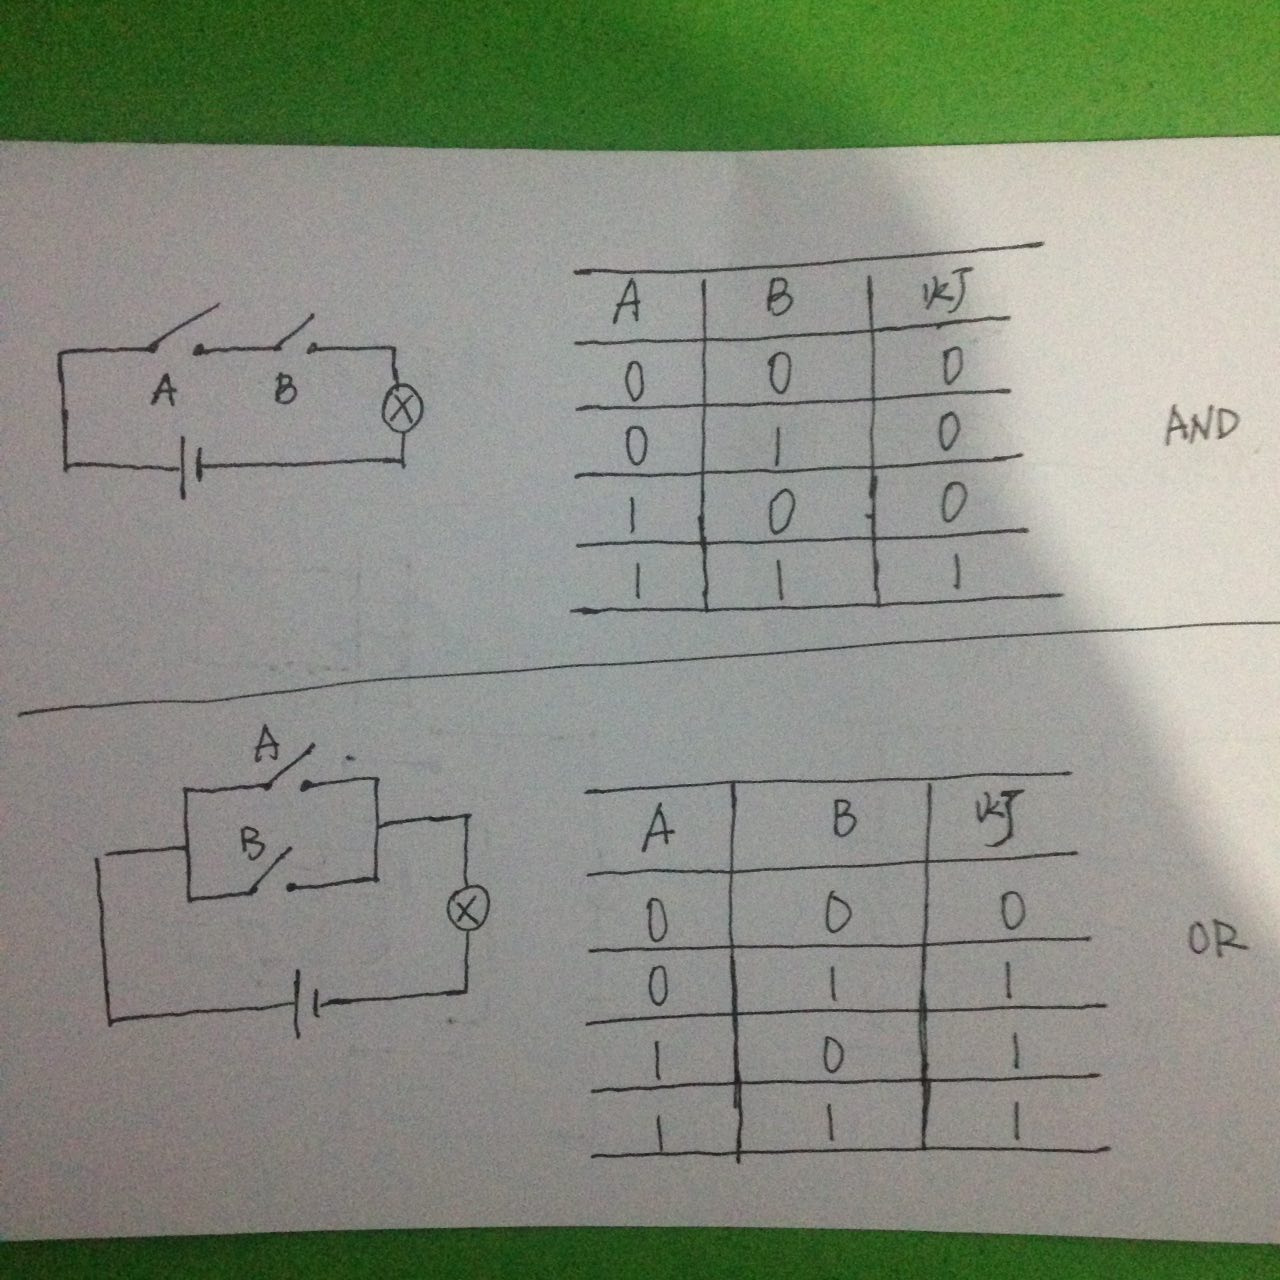 A B
A B 灯
0 0 0
0 1 0
1 0 0
1 1 1
AND
A
B
A B 灯
0 0 0
0 1 1
1 0 1
1 1 1
OR